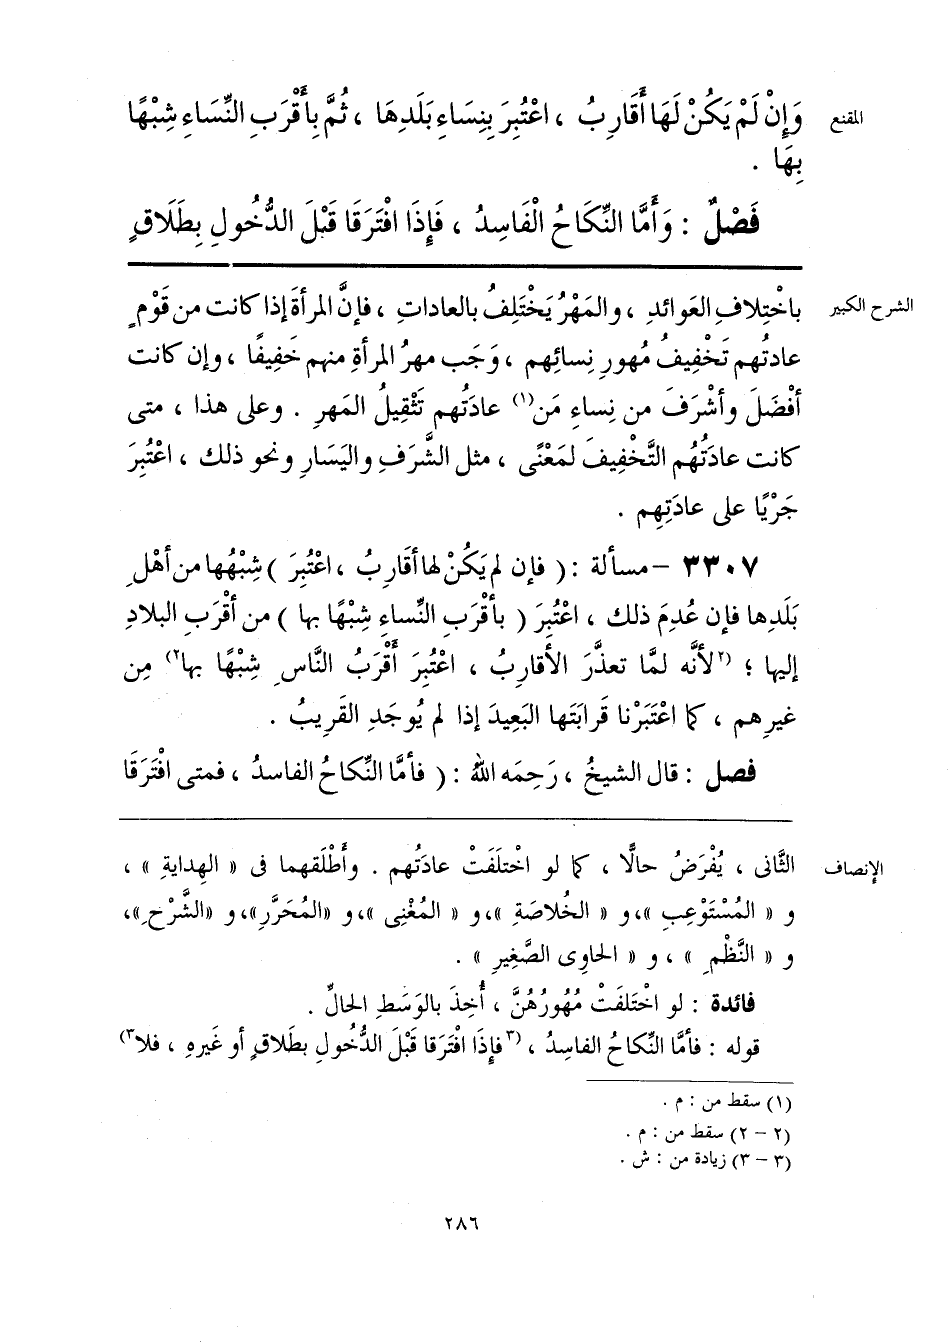 المقنع وَإِنْ لَمْ يَكُنْ لَهَا أَقَارِبُ ، اعْتُبِرَ بِنِسَاءِ بَلَدِهَا ، ثُمَّ بِأَقْرَبِ النِّسَاءِ شِبْهًا
بِهَا .
فَصْلٌ : وَأَمَّا النِّكَاحُ الْفَاسِدُ ، فَإِذَا افْتَرَقَا قَبْلَ الدُّخُولِ بِطَلَاقٍ
الشرح الكبير باخْتِلافِ العَوائدِ ، والمَهْرُ يَخْتَلِفُ بالعاداتِ ، فإنَّ المرأةَ إذا كانت من قَوْمٍ
عادتُهم تَخْفِيفُ مُهورِ نِسائِهم ، وَجَب مهرُ المرأةِ منهم خَفِيفًا ، وإن كانت
أفْضَلَ وأشْرَفَ من نِساءِ مَن(١) عادَتُهم تَثْقِيلُ المَهرِ . وعلى هذا ، متى
كانت عادَتُهُم التَّخْفِيفَ لمَعْنًى ، مثل الشَّرَفِ واليَسارِ ونحو ذلك ، اعْتُبِرَ
جَرْيًا على عادَتِهم .
٣٣٠٧ – مسألة : ( فإن لم يَكُنْ لها أقارِبُ ، اعْتُبِرَ ) شِبْهُها من أهْلِ
بَلَدِها فإن عُدِمَ ذلك ، اعْتُبِرَ ( بأقْرَبِ النِّساءِ شِبْهًا بها ) من أقْرَبِ البلادِ
إليها ؛ (٢لأنَّه لمَّا تعذَّرَ الأقاربُ ، اعْتُبِرَ أقْرَبُ النَّاسِ شِبْهًا بها٢) مِن
غيرِهم ، كما اعْتَبَرْنا قَرابَتَها البَعِيدَ إذا لم يُوجَدِ القَرِيبُ .
فصل : قال الشيخُ ، رَحِمَه اللهُ : ( فأمَّا النِّكاحُ الفاسدُ ، فمتى افْتَرَقَا
الإنصاف الثَّانى ، يُفْرَضُ حالًّا ، كما لو اخْتلَفَتْ عادَتُهم . وأَطْلَقهما فى « الهِدايةِ » ،
و « المُسْتَوْعِبِ »، و « الخُلاصَةِ »، و « المُغْنِى »، و «المُحَرَّرِ»، و «الشَّرْحِ»،
و « النَّظْمِ » ، و « الحاوِى الصَّغِيرِ » .
فائدة : لو اخْتَلَفَتْ مُهُورُهُنَّ ، أُخِذَ بالوَسَطِ الحالِّ .
قوله : فأمَّا النِّكاحُ الفاسِدُ ، (٣فإذَا افْتَرَقا قَبْلَ الدُّخُولِ بطَلاقٍ أو غَيرِهِ ، فلا٣)
(١) سقط من : م .
(٢ – ٢) سقط من : م .
(٣ – ٣) زيادة من : ش .
٢٨٦